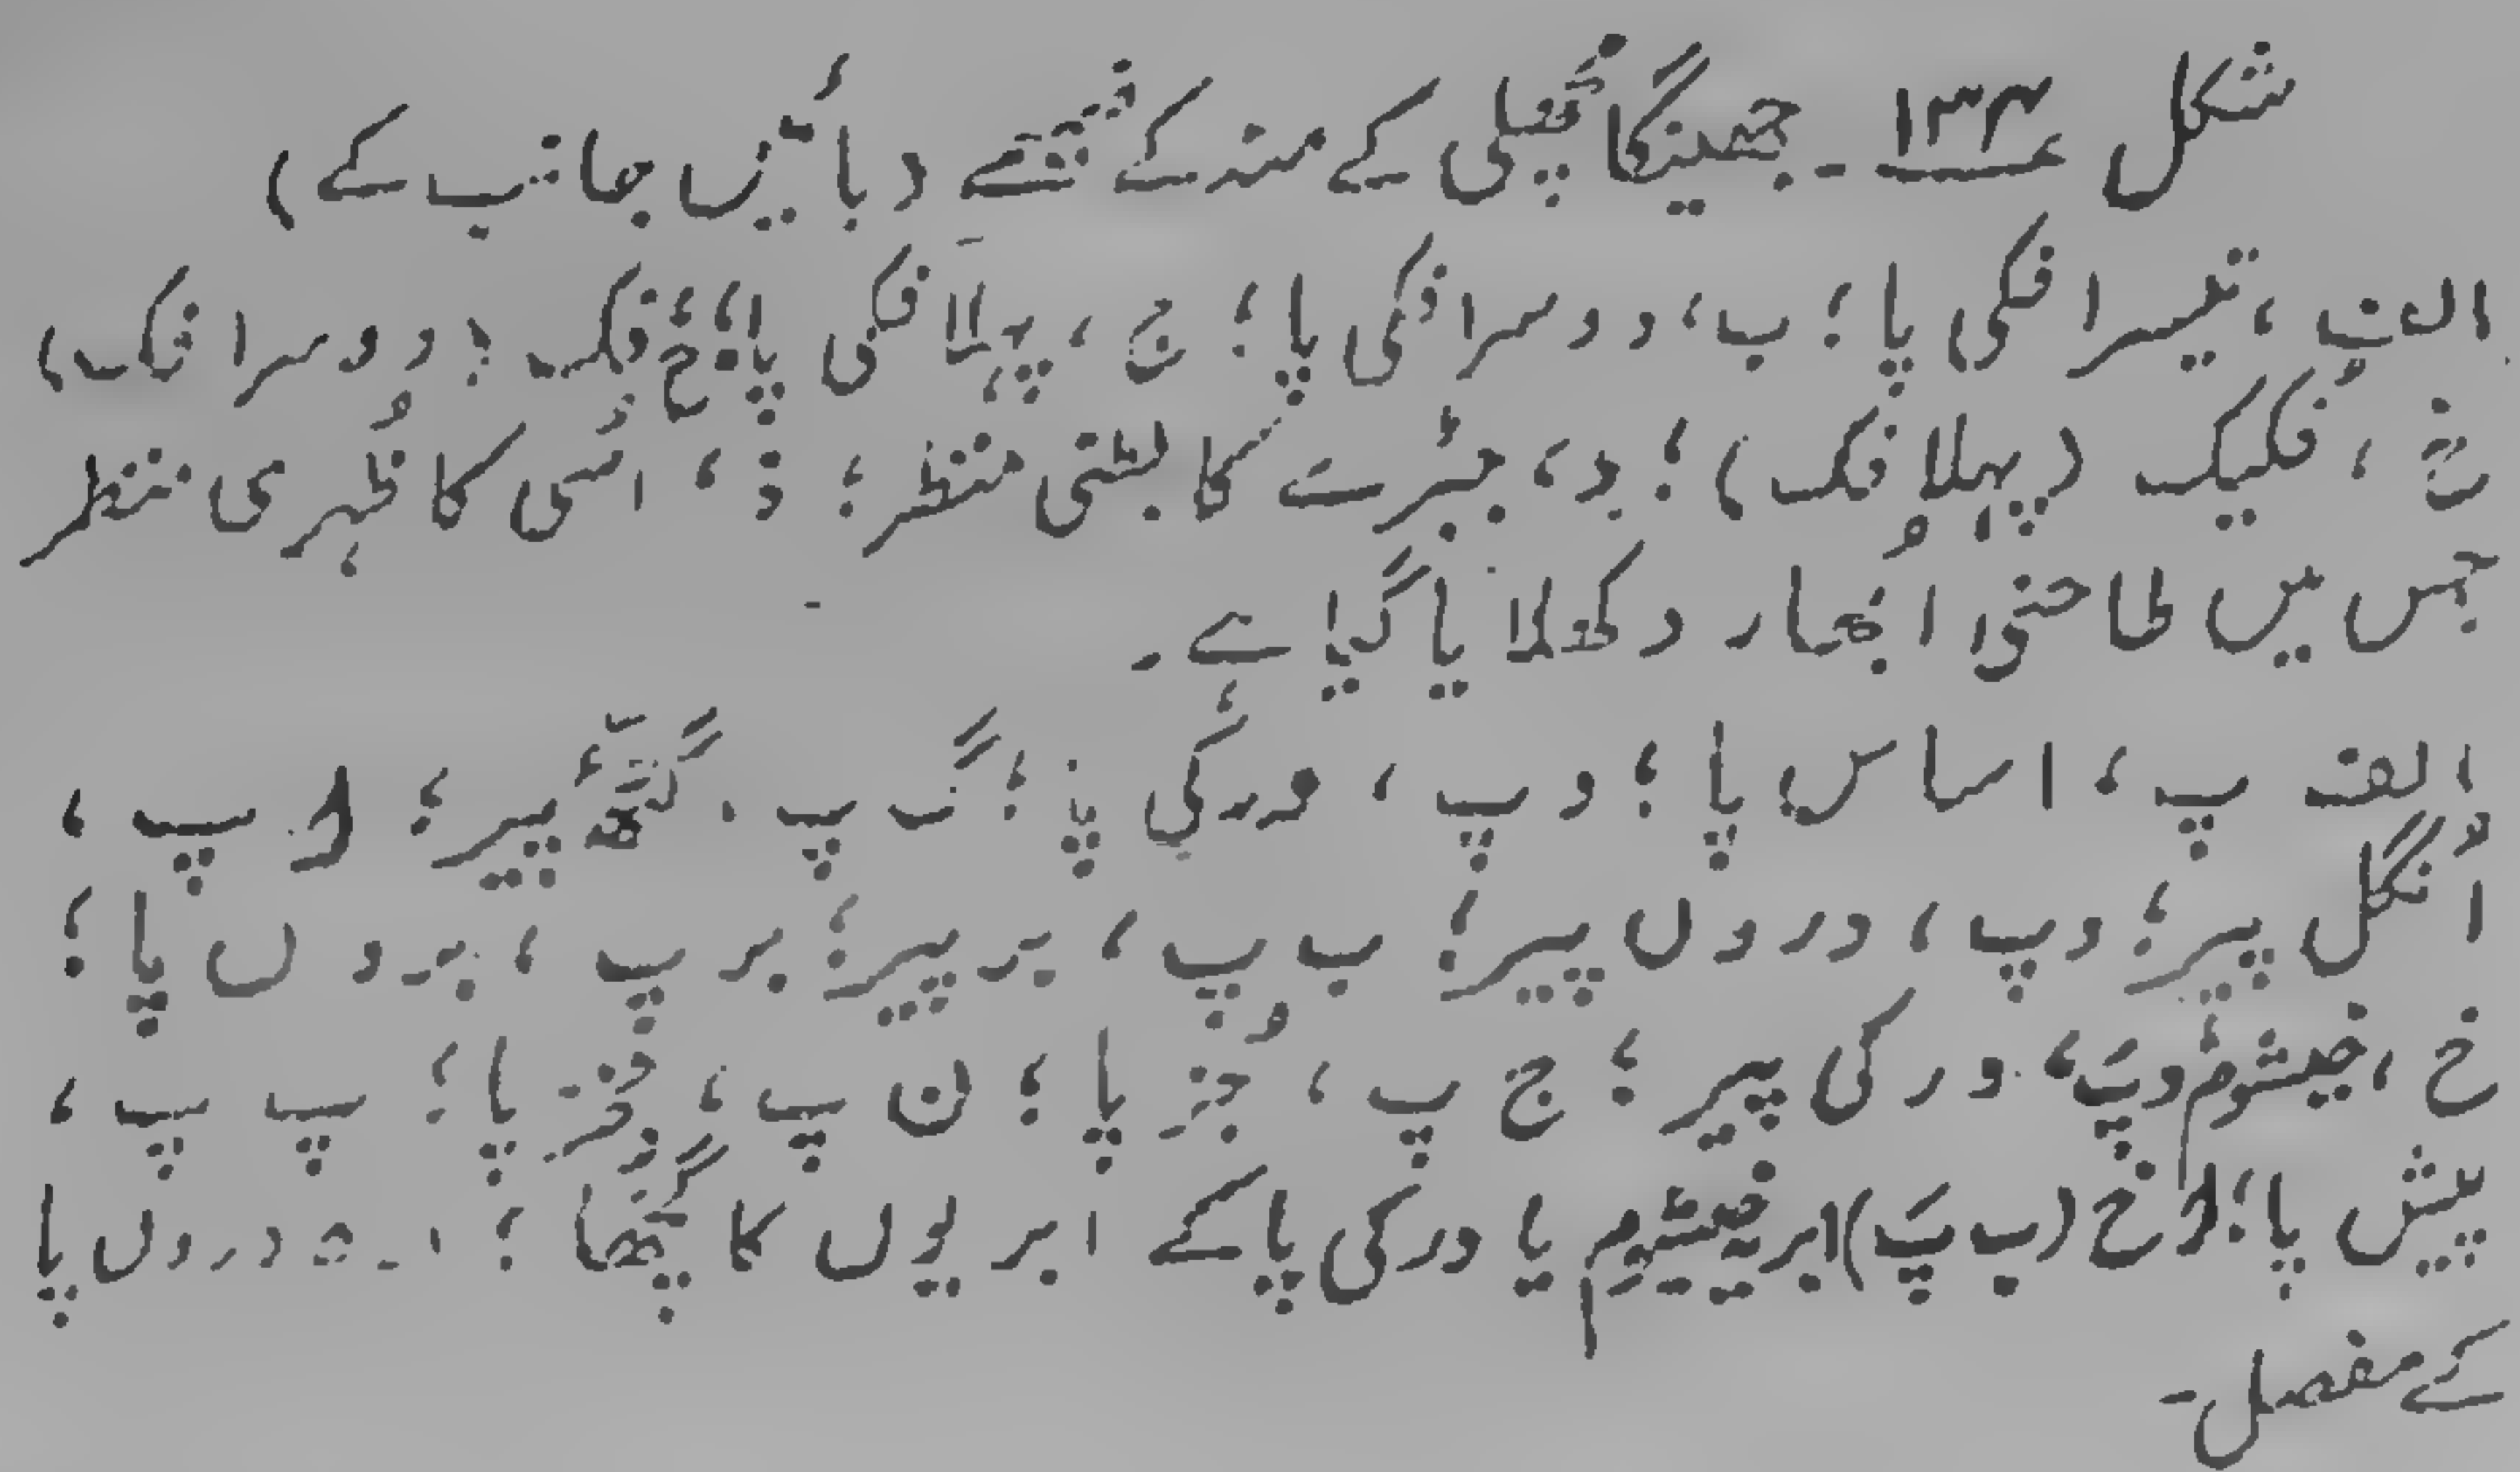 شکل ۱۳۴ ۔ جھینگا مچھلی کے منہ کے شبیے (بائیں جانب کے)
الف، تیسرا فکی پا؛ ب، دوسرا فکی پا؛ ج، پہلا فکی پا؛ فک (دوسرا فک)،
فکیک (پہلا فک)؛ د، جبڑے کا بطنی منظر؛ ذ، اسی کا ظہری منظر
جس میں طاحنی ابھار دکھلایا گیا ہے ۔
الف پ، اساس پا؛ و پ، ورکی پا؛ گ پ، گتھ پیر؛ ا پ،
انگل پیر؛ و پ، وروں پیر؛ ب پ، بر پیر؛ بر پ، بروں پا؛
خ، خیشوم و پ، ورکی پیر؛ ج پ، جز پا؛ ن پ، پا؛ پ پ،
پیش پا؛ خ (ب پ) ابر خیشوم یا ورکی پا کے ابریوں کا گچھا؛ دروں پا
کے مفصل ۔